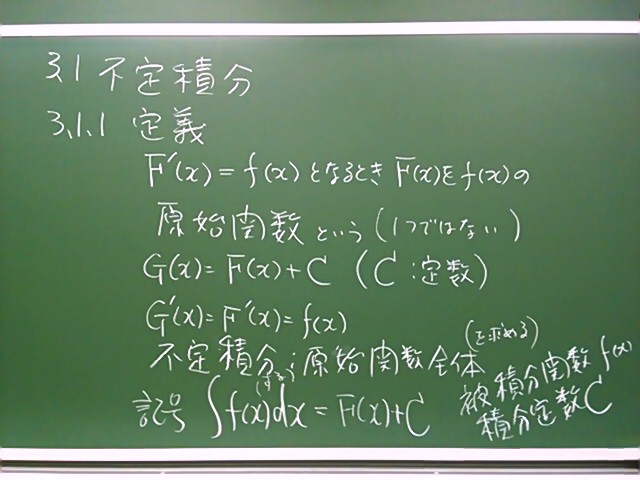 3.1 不定積分
3.1.1 定義
F'(x) = f(x) となるとき F(x)を f(x)の
原始関数 という (1つではない)
G(x) = F(x) + C (C : 定数)
G'(x) = F'(x) = f(x)
不定積分(する) ; 原始関数全体 (を求める)
記号 ∫f(x)dx = F(x) + C
被積分関数 f(x)
積分定数 C